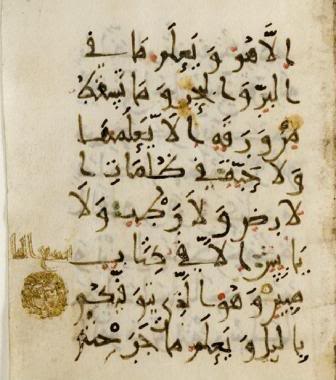 الا هو ويعلم ما في
البر والبحر وما تسقط
من ورقة الا يعلمها
ولا حبة في ظلمات ا
لارض ولا رطب ولا
يابس الا في كتاب
مبين وهو الذي يتوفيكم
باليل ويعلم ما جرحتم